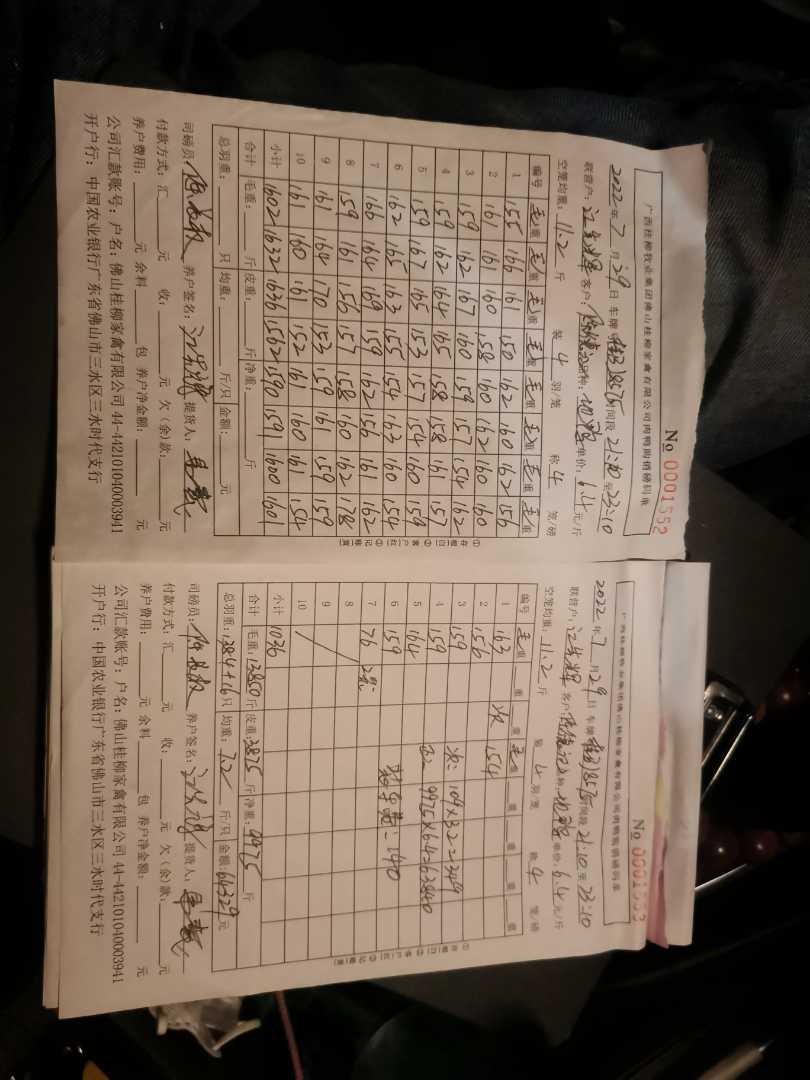 广西桂柳牧业集团佛山桂柳家禽有限公司肉鸭购销磅码单
№ 0001552
2022年7月29日 车牌 8575 时间段 21:10 至 23:10
联营户: 客户: 品种: 单价: 6.4元/斤
空笼均重: 11.2 斤 装 4 羽/笼 称 4 笼/磅
编号 毛重 毛重 毛重 毛重 毛重 毛重 毛重 毛重
1 155 166 161 150 162 160 162 156
2 161 161 160 158 160 162 160 160
3 159 162 167 160 159 157 154 162
4 159 162 164 165 158 158 161 157
5 159 167 165 153 157 154 160 159
6 162 165 163 155 154 163 160 154
7 166 164 169 159 162 156 161 162
8 159 161 156 157 158 160 162 178
9 161 164 170 153 159 161 159 159
10 161 160 161 152 161 160 161 154
小计 1602 1632 1636 1562 1590 1591 1600 1601
合计 毛重: 斤 皮重: 斤 净重: 斤
总羽重: 只 均重: 斤/只 金额: 元
司磅员: 养户签名: 提货人:
付款方式: 汇 元 收: 元 欠(余)款: 元
养户费用: 元 余料 包 养户净金额: 元
公司汇款账号: 户名: 佛山桂柳家禽有限公司 44-442101040003941
开户行: 中国农业银行广东省佛山市三水区三水时代支行
①存根(白) ②客户(红) ③记账(黄)
广西桂柳牧业集团佛山桂柳家禽有限公司肉鸭购销磅码单
№ 0001553
2022年7月29日 车牌 8575 时间段 21:10 至 23:10
联营户: 客户: 品种: 单价: 6.4元/斤
空笼均重: 11.2 斤 装 4 羽/笼 称 4 笼/磅
编号 毛重 重 重 毛重 重 重 重 重
1 163 次 154
2 156
3 159 次: 109×3.2=349
4 159 正: 9975×6.4=63840
5 164
6 159 140
7 76 2笼
8
9
10
小计 1036
合计 毛重: 13850 斤 皮重: 3875 斤 净重: 9975 斤
总羽重: 1384+16 只 均重: 7.2 斤/只 金额: 64329 元
司磅员: 养户签名: 提货人:
付款方式: 汇 元 收: 元 欠(余)款: 元
养户费用: 元 余料 包 养户净金额: 元
公司汇款账号: 户名: 佛山桂柳家禽有限公司 44-442101040003941
开户行: 中国农业银行广东省佛山市三水区三水时代支行
①存根(白) ②客户(红) ③记账(黄)